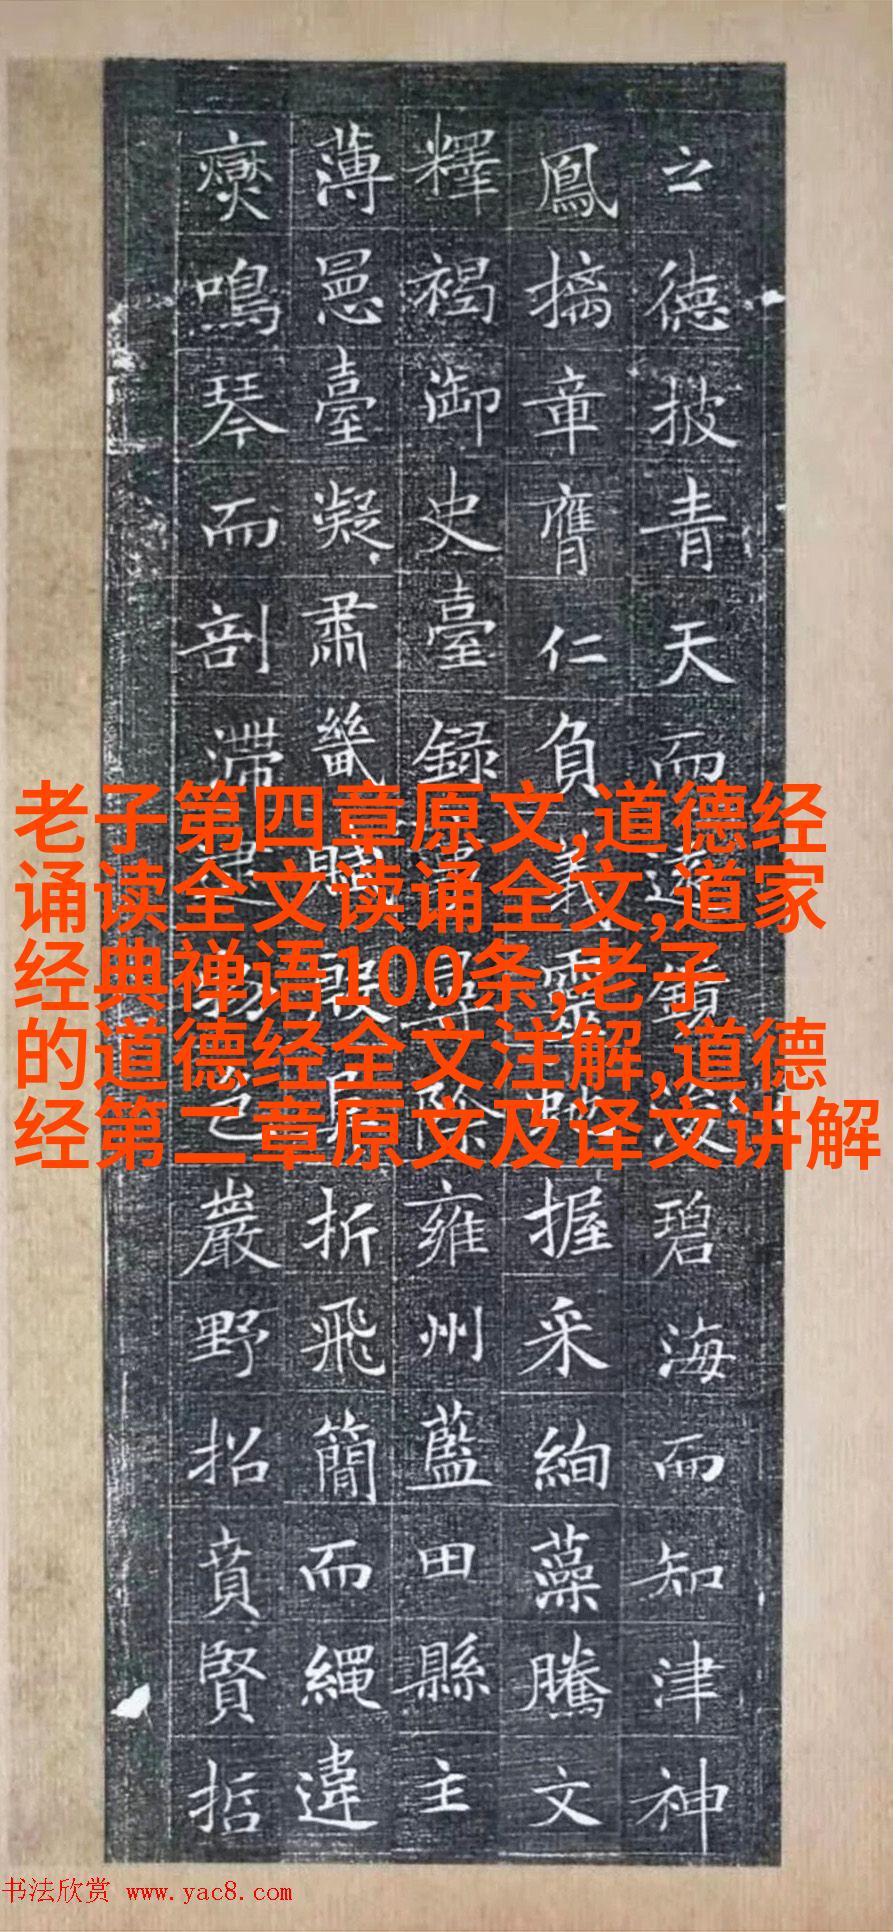 之德披青天而遠碧海而知津神
鳳摛章膺仁負義靈握采絢藻騰文
釋褐御史臺録事尋除雍州藍田縣主
薄臺凝肅畿殷折飛簡而繩違
鳴琴而剖滯巖野招賁賢哲
老子第四章原文,道德经
诵读全文读诵全文,道家
经典禅语100条,老子
的道德经全文注解,道德
经第二章原文及译文讲解
书法欣赏 www.yac8.com